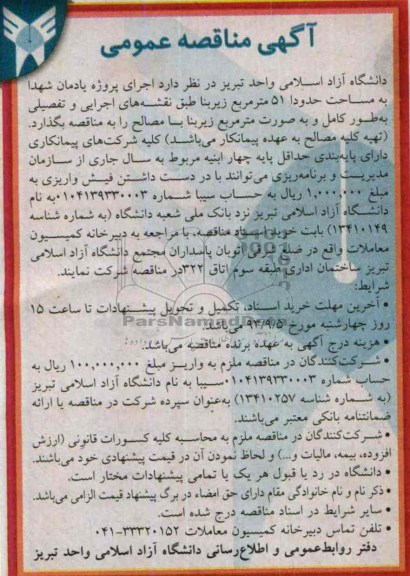 آگهی مناقصه عمومی
دانشگاه آزاد اسلامی واحد تبریز در نظر دارد اجرای پروژه یادمان شهدا
به مساحت حدودا ۵۱ مترمربع زیربنا طبق نقشه‌های اجرایی و تفصیلی
به‌طور کامل و به صورت مترمربع زیربنا با مصالح را به مناقصه بگذارد.
(تهیه کلیه مصالح به عهده پیمانکار می‌باشد) کلیه شرکت‌های پیمانکاری
دارای پایه‌بندی حداقل پایه چهار ابنیه مربوط به سال جاری از سازمان
مدیریت و برنامه‌ریزی می‌توانند با در دست داشتن فیش واریزی به
مبلغ ۱,۰۰۰,۰۰۰ ریال به حساب سیبا شماره ۰۱۰۴۱۳۹۳۳۰۰۰۳ به نام
دانشگاه آزاد اسلامی تبریز نزد بانک ملی شعبه دانشگاه (به شماره شناسه
۱۳۴۱۰۱۴۹) بابت خرید اسناد مناقصه، با مراجعه به دبیرخانه کمیسیون
معاملات واقع در ضلع شرقی اتوبان پاسداران مجتمع دانشگاه آزاد اسلامی
تبریز ساختمان اداری طبقه سوم اتاق ۳۲۲ در مناقصه شرکت نمایند.
شرایط:
• آخرین مهلت خرید اسناد، تکمیل و تحویل پیشنهادات تا ساعت ۱۵
روز چهارشنبه مورخ ۹۳/۹/۵ می‌باشد.
ParsNamadData
• هزینه درج آگهی به عهده برنده مناقصه می‌باشد.
• شرکت‌کنندگان در مناقصه ملزم به واریز مبلغ ۱۰۰,۰۰۰,۰۰۰ ریال به
حساب شماره ۰۱۰۴۱۳۹۳۳۰۰۰۳ سیبا به نام دانشگاه آزاد اسلامی تبریز
(به شماره شناسه ۱۳۴۱۰۲۵۷) به‌عنوان سپرده شرکت در مناقصه یا ارائه
ضمانتنامه بانکی معتبر می‌باشند.
• شرکت‌کنندگان در مناقصه ملزم به محاسبه کلیه کسورات قانونی (ارزش
افزوده، بیمه، مالیات و...) و لحاظ نمودن آن در قیمت پیشنهادی خود می‌باشند.
• دانشگاه در رد یا قبول هر یک یا تمامی پیشنهادات مختار است.
• ذکر نام و نام خانوادگی مقام دارای حق امضاء در برگ پیشنهاد قیمت الزامی می‌باشد.
• سایر شرایط در اسناد مناقصه درج شده است.
• تلفن تماس دبیرخانه کمیسیون معاملات ۳۳۳۲۰۱۵۲-۰۴۱
دفتر روابط‌عمومی و اطلاع‌رسانی دانشگاه آزاد اسلامی واحد تبریز